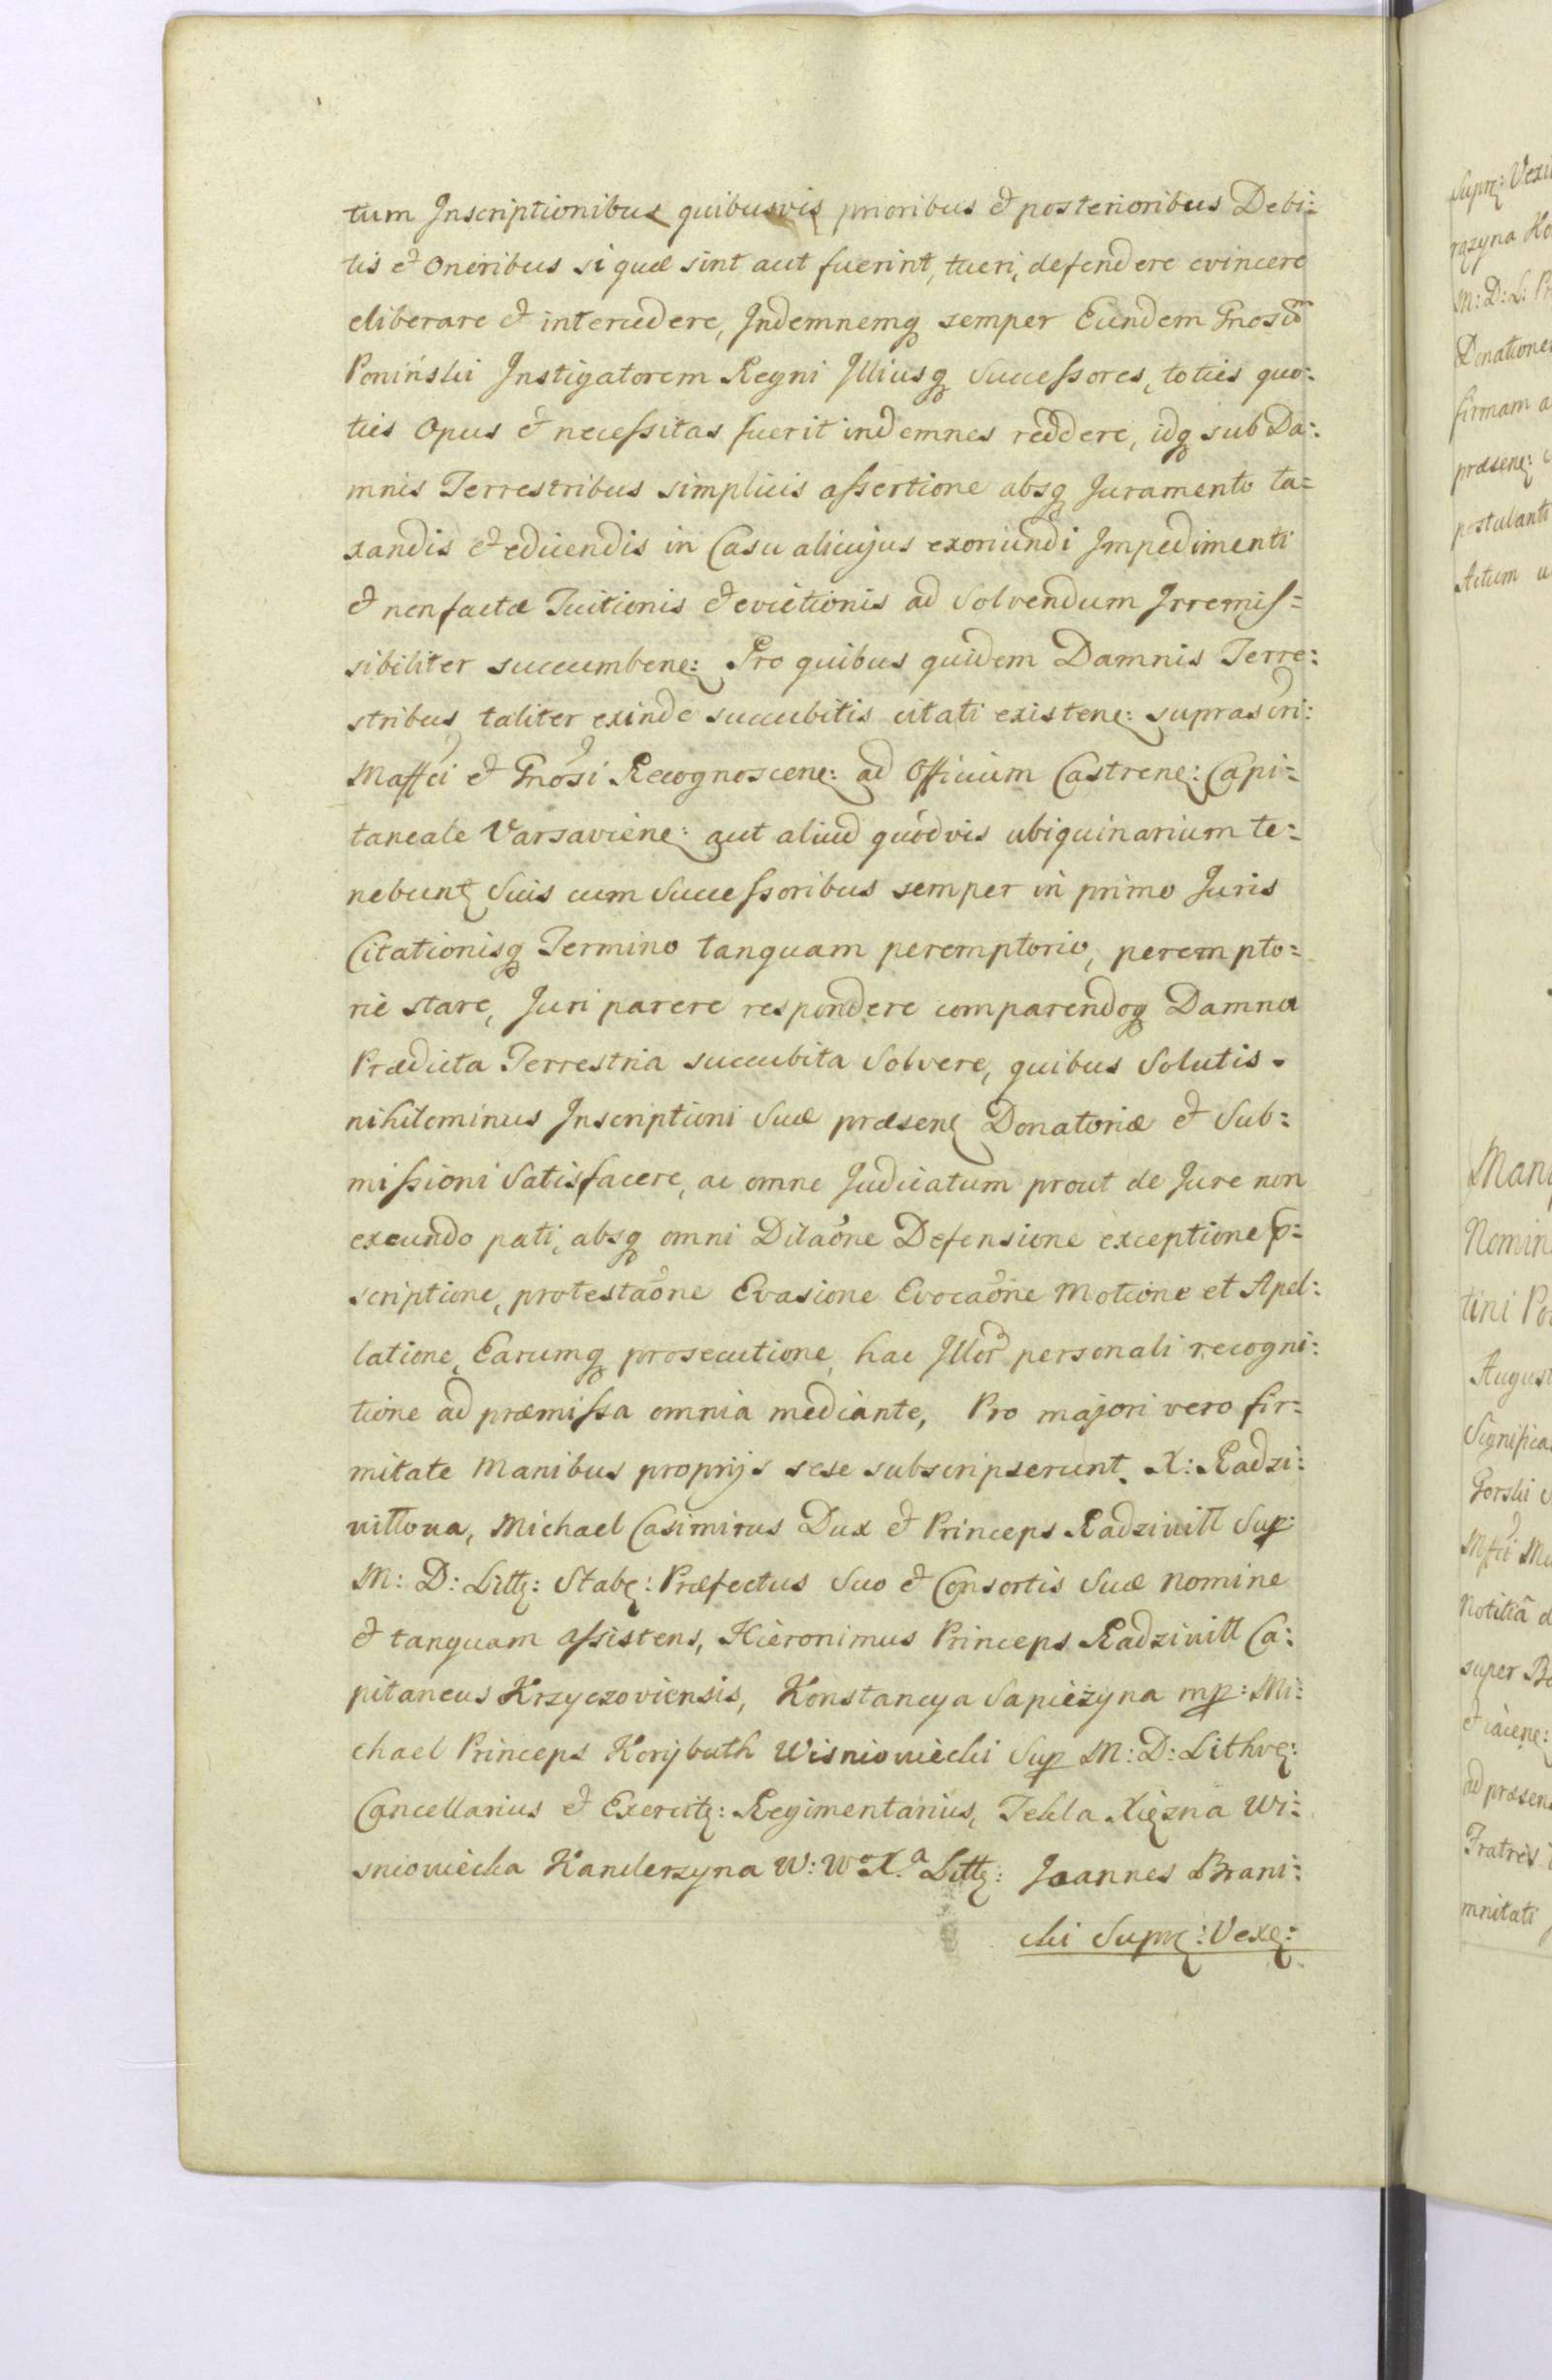 tum Inscriptionibus quibusvis prioribus & posterioribus Debi:
tis & Oneribus si quæ sint aut fuerint, tueri, defendere evincere
eliberare & intercedere, Indemnemq semper Eundem Gnosũm
Poniński Instigatorem Regni Illiusq Successores, toties quo:
ties Opus & necessitas fuerit indemnes reddere, idq sub Da:
mnis Terrestribus simplicis assertione absq Juramento ta=
xandis & edicendis in Casu alicujus exoriundi Impedimenti
& non factæ Tuitionis & evictionis ad Solvendum Irremis=
sibiliter succumbenꝭ: Pro quibus quidem Damnis Terre:
stribus taliter exinde succubitis citati existenꝭ: suprascri:
Maffci & Gnosi Recognoscenꝭ: ad Officium Castrenꝭ: Capi=
taneale Varsavienꝭ: aut aliud quodvis ubiquinarium te:
nebunt Suis cum Successoribus semper in primo Juris
Citationisq Termino tanquam peremptorio, perempto=
rie stare, Juri parere respondere comparendoq Damna
Prædicta Terrestria succubita Solvere, quibus Solutis
nihilominus Inscriptioni Suæ præsenꝭ Donatoriæ & Sub=
missioni Satisfacere, ac omne Judicatum prout de Jure non
exeundo pati, absq omni Dilaõne Defensione exceptione p=
scriptione, protestaõne Evasione Evocaõne Motione et Apel:
latione, Earumq prosecutione, hac Illor personali recogni:
tione ad præmissa omnia mediante, Pro majori vero fir=
mitate Manibus proprijs sese subscripserunt. X: Radzi:
viłłowa, Michael Casimirus Dux & Princeps Radziwiłł Sup:
M: D: Littꝭ: Stabꝭ: Præfectus Suo & Consortis Suæ Nomine
& tanquam Assistens, Hieronimus Princeps Radziwiłł Ca:
pitaneus Krzyczoviensis, Konstancya Sapieżyna mp: Mi:
chael Princeps Korybuth Wisniowiecki Sup M: D: Lithvꝭ:
Cancellarius & Exercitꝭ: Regimentarius, Tekla Xiężna Wi:
sniowiecka Kanclerzyna W: Wº X.ª Littꝭ: Joannes Brani:
cki Suprꝭ: Vexꝭ:
Supꝭ: Vexi
rązyna
M: D: L: Pr
Donatione
firmam a
præsenꝭ:
postulanti
Actum
Manꝭ
Nomin
tini
August
Significa
Gorski
Notitiã d
super
ad præsen
Fratres
mnitati